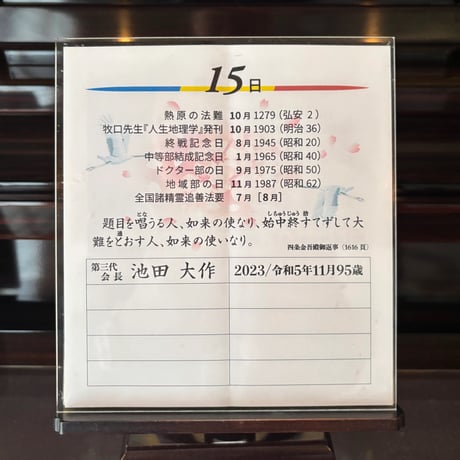 15日
熱原の法難 10月 1279 (弘安 2)
牧口先生『人生地理学』発刊 10月 1903 (明治 36)
終戦記念日 8月 1945 (昭和 20)
中等部結成記念日 1月 1965 (昭和 40)
ドクター部の日 9月 1975 (昭和 50)
地域部の日 11月 1987 (昭和 62)
全国諸精霊追善法要 7月 [8月]
題目を唱うる人、如来の使なり、始中終すてずして大
難をとおす人、如来の使いなり。
四条金吾殿御返事 (1616 頁)
第三代会長 池田 大作 2023/令和5年11月95歳